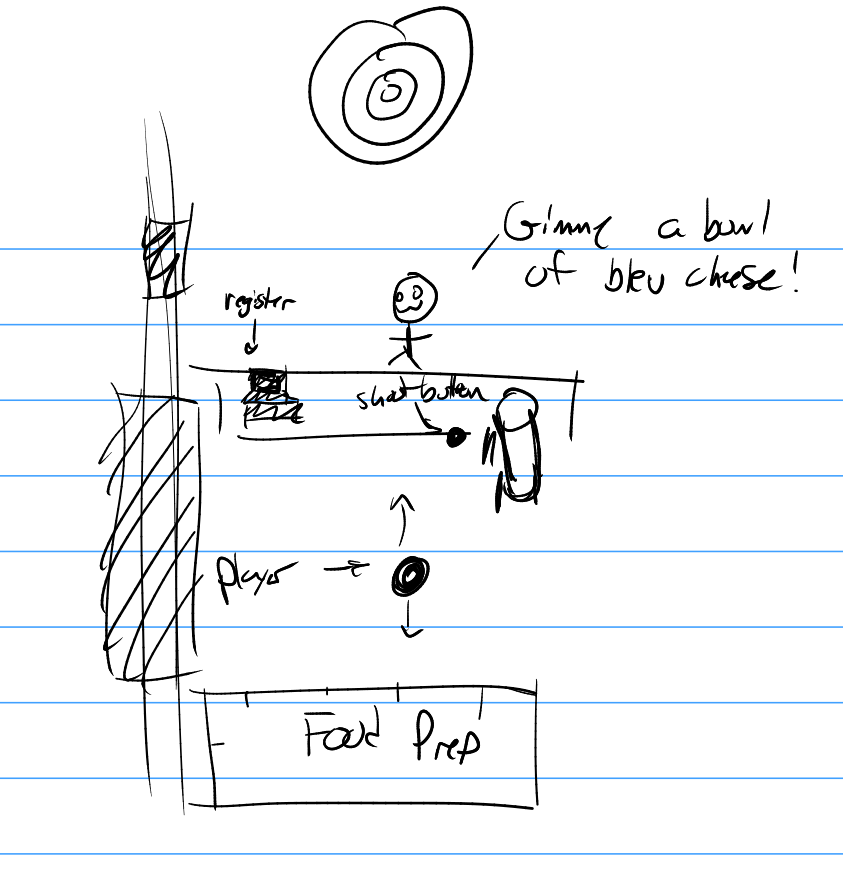 Gimme a bowl
of bleu cheese!
register
shoot button
player
Food Prep